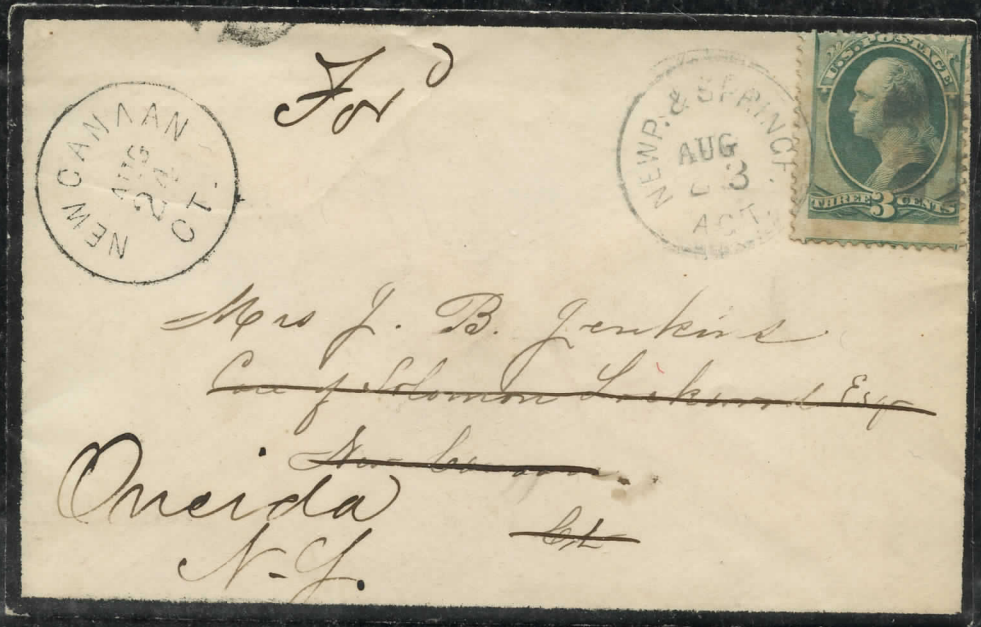 Ford
NEW CANAAN
AUG
24
CT.
NEWP. & SPRINGF.
AUG
23
AGT.
U.S. POSTAGE
THREE 3 CENTS
Mrs J. B. Jenkins
Care of Solomon Lockwood Esqr
New Canaan.
Ct
Oneida
N-Y.